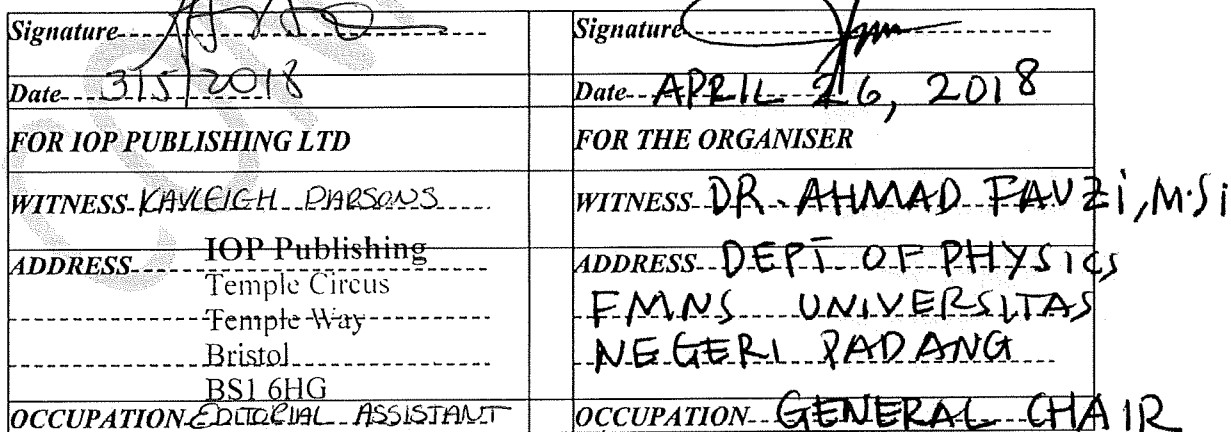 Signature
Date 3/5/2018
FOR IOP PUBLISHING LTD
WITNESS KAYLEIGH PARSONS
ADDRESS IOP Publishing
Temple Circus
Temple Way
Bristol
BS1 6HG
OCCUPATION EDITORIAL ASSISTANT
Signature
Date APRIL 26, 2018
FOR THE ORGANISER
WITNESS DR. AHMAD FAUZi, M.Si
ADDRESS DEPT OF PHYSICS
FMNS UNIVERSITAS
NEGERI PADANG
OCCUPATION GENERAL CHAIR